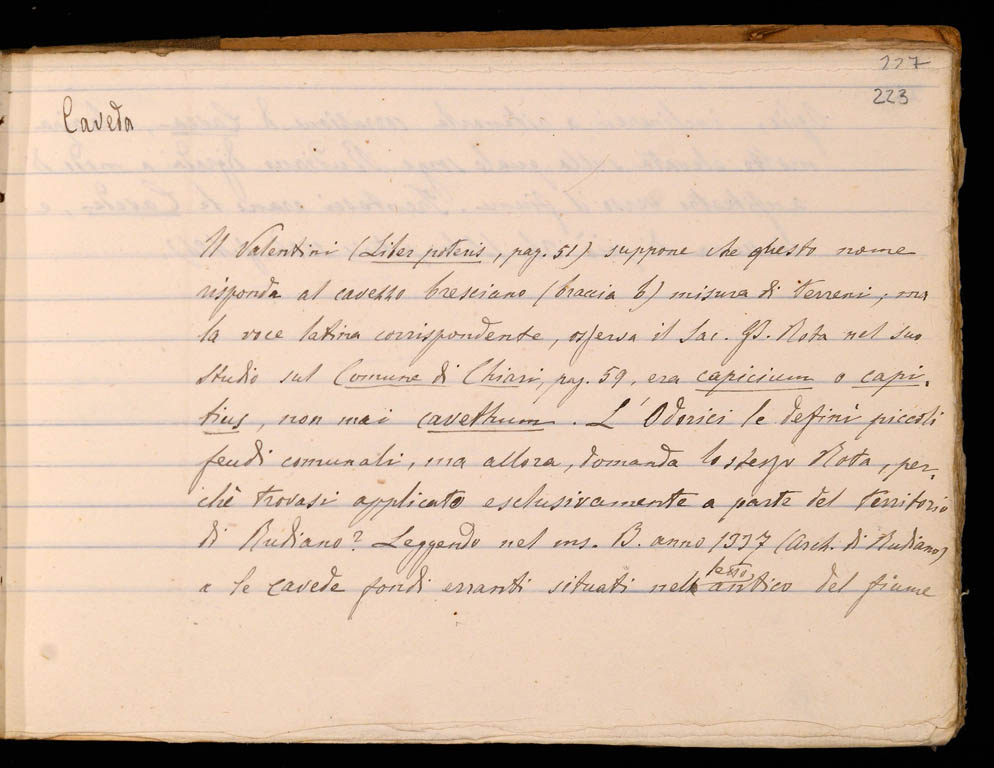 227
223
Caveda
Il Valentini (Liber poteris, pag. 51) suppone che questo nome
risponda al cavezzo bresciano (braccia 6) misura di terreni; ma
la voce latina corrispondente, osserva il Sac. GB. Rota nel suo
studio sul Comune di Chiari, pag. 59, era capicium o capi-
tius, non mai cavethum. L'Odorici le definì piccoli
feudi comunali, ma allora, domanda lo stesso Rota, per-
chè trovasi applicato esclusivamente a parte del territorio
di Rudiano? Leggendo nel ms. B. anno 1337 (Arch. di Rudiano)
a le cavede fondi erranti situati nell' letto antico del fiume